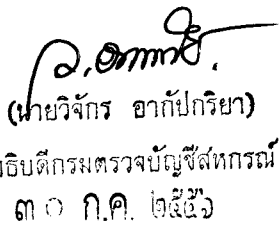 (นายวิจักร อากัปกริยา)
ธิบดีกรมตรวจบัญชีสหกรณ์
๓๐ ก.ค. ๒๕๕๖